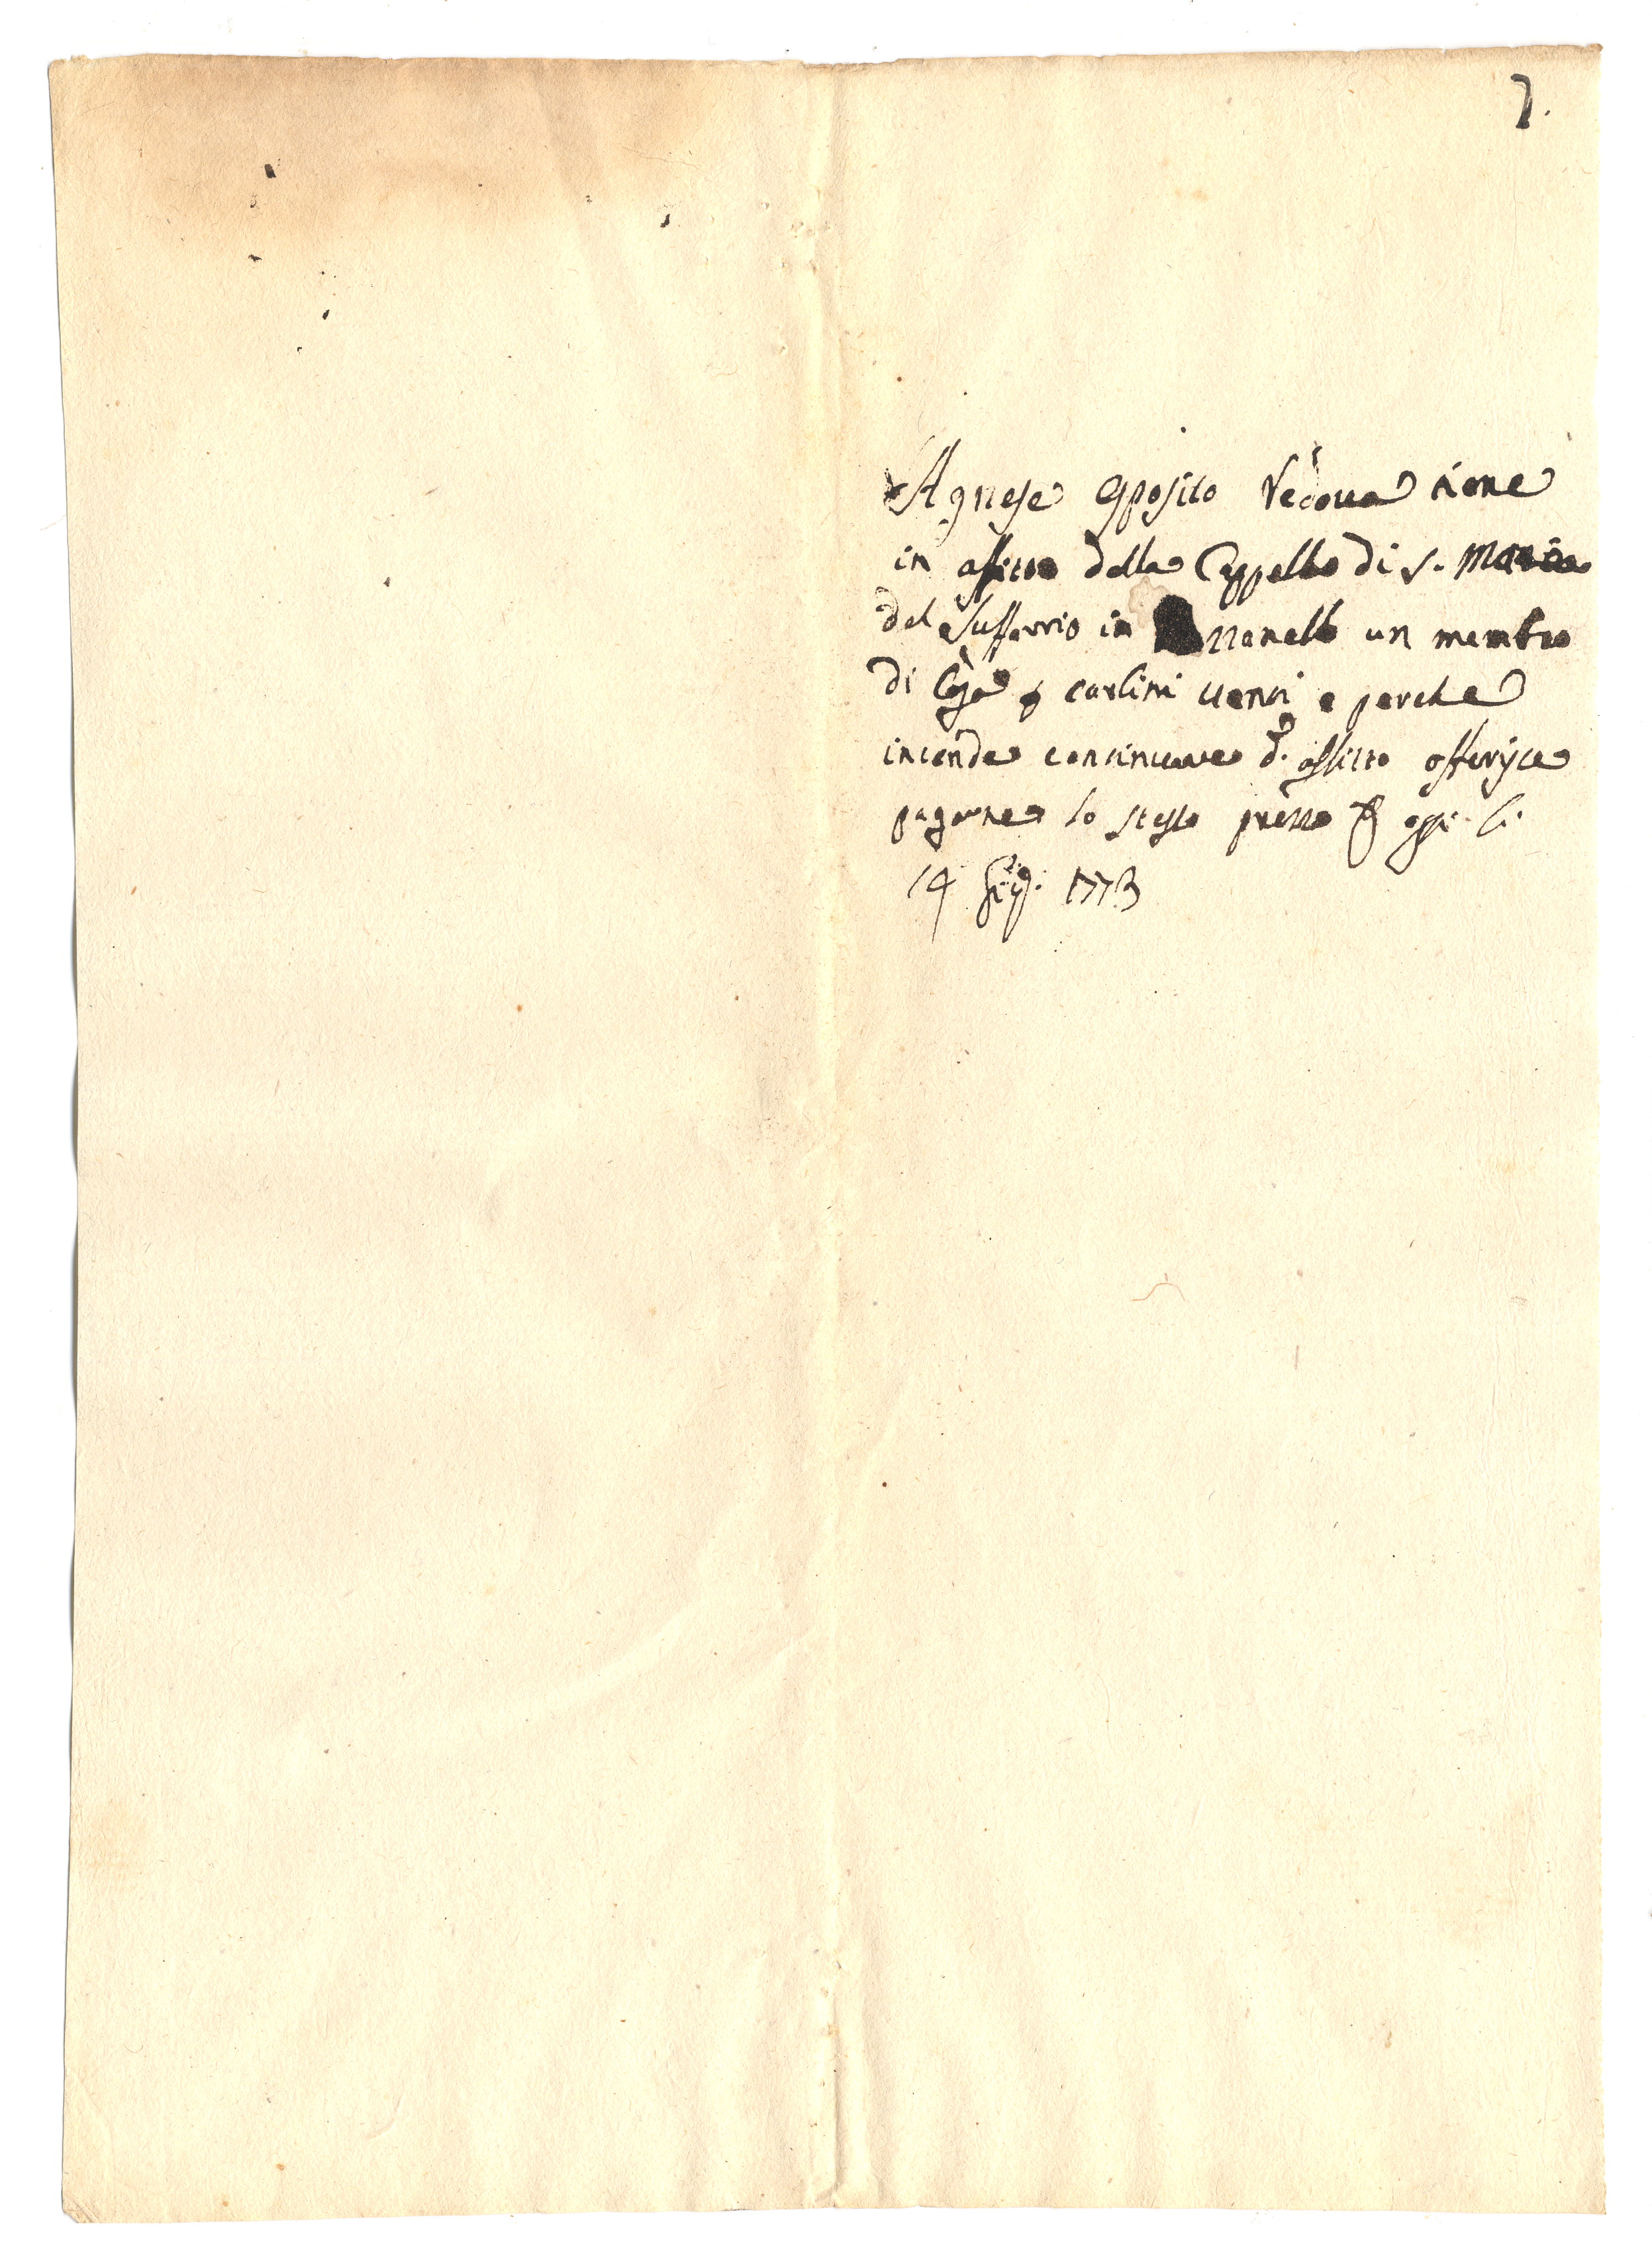 7.
Agnese Esposito Vedova tiene
in affitto dalla Cappella di S. Maria
del Suffavrio in un membro
di Casa p carlini venti e perche
intende continuare d.o affitto offerisce
pagarne lo stesso prezzo oggi li
14 1773